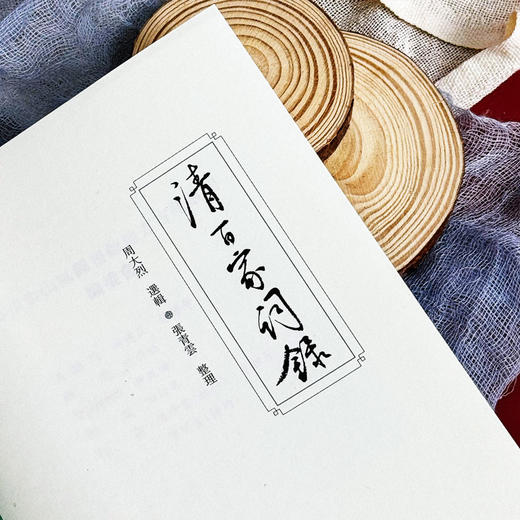 清百家词錄
周大烈 選輯 張青雲 整理